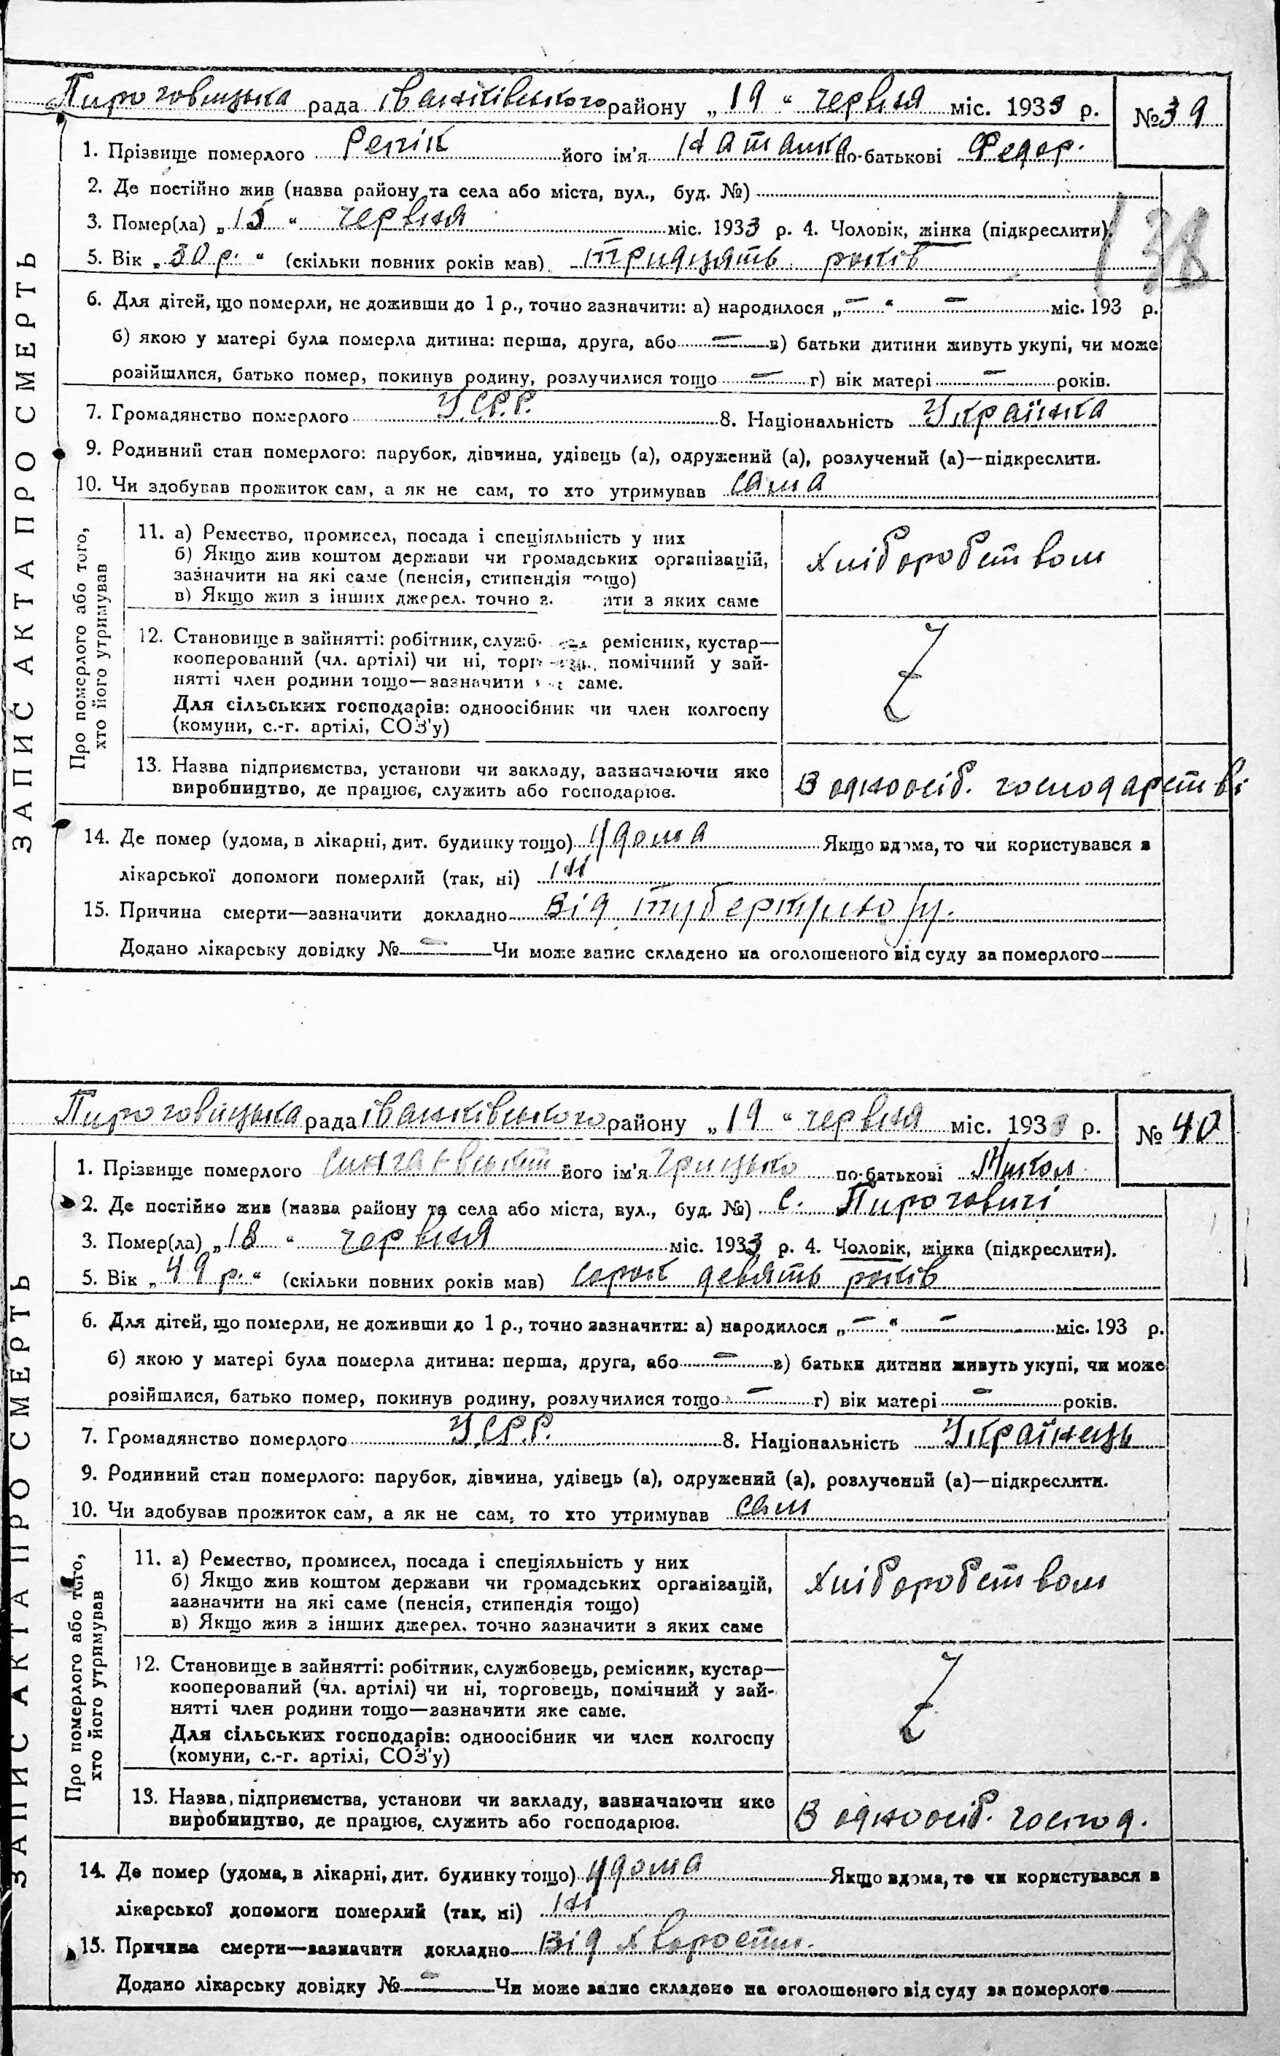 Пироговицька рада Іванківського району „19“ червня міс. 1933 р. №39
1. Прізвище померлого Репік його ім'я Наталка по-батькові Федор.
138
2. Де постійно жив (назва району та села або міста, вул., буд. №)
3. Помер(ла) „15“ червня міс. 1933 р. 4. Чоловік, жінка (підкреслити).
5. Вік „30 р.“ (скільки повних років мав) тридцять років
6. Для дітей, що померли, не доживши до 1 р., точно зазначити: а) народилося „—“ — міс. 193 р.
б) якою у матері була померла дитина: перша, друга, або — в) батьки дитини живуть укупі, чи може
розійшлися, батько помер, покинув родину, розлучилися тощо — г) вік матері — років.
7. Громадянство померлого У.С.Р.Р. 8. Національність Українка
9. Родинний стан померлого: парубок, дівчина, удівець (а), одружений (а), розлучений (а)—підкреслити.
10. Чи здобував прожиток сам, а як не сам, то хто утримував сама
ЗАПИС АКТА ПРО СМЕРТЬ
Про померлого або того,
хто його утримував
11. а) Ремество, промисел, посада і спеціяльність у них
б) Якщо жив коштом держави чи громадських організацій,
зазначити на які саме (пенсія, стипендія тощо)
в) Якщо жив з інших джерел. точно з. ати з яких саме
Хліборобством
12. Становище в зайнятті: робітник, служб. ремісник, кустар—
кооперований (чл. артілі) чи ні, торг помічний у зай-
нятті член родини тощо—зазначити саме.
Для сільських господарів: одноосібник чи член колгоспу
(комуни, с.-г. артілі, СОЗ'у)
Z
13. Назва підприємства, установи чи закладу, зазначаючи яке
виробництво, де працює, служить або господарює.
В одноосіб. господарстві
14. Де помер (удома, в лікарні, дит. будинку тощо) удома Якщо вдома, то чи користувався в
лікарської допомоги померлий (так, ні) ні
15. Причина смерти—зазначити докладно Від
Додано лікарську довідку № — Чи може запис складено на оголошеного від суду за померлого
Пироговицька рада Іванківського району „19“ червня міс. 1933 р. № 40
1. Прізвище померлого Сингаєвський його ім'я Грицько по-батькові Микол
2. Де постійно жив (назва району та села або міста, вул., буд. №) с. Пироговичі
3. Помер(ла) „18“ червня міс. 1933 р. 4. Чоловік, жінка (підкреслити).
5. Вік „49 р.“ (скільки повних років мав) сорок девять років
6. Для дітей, що померли, не доживши до 1 р., точно зазначити: а) народилося „—“ — міс. 193 р.
б) якою у матері була померла дитина: перша, друга, або — в) батьки дитини живуть укупі, чи може
розійшлися, батько помер, покинув родину, розлучилися тощо — г) вік матері — років.
7. Громадянство померлого У.С.Р.Р. 8. Національність Українець
9. Родинний стан померлого: парубок, дівчина, удівець (а), одружений (а), розлучений (а)—підкреслити.
10. Чи здобував прожиток сам, а як не сам, то хто утримував сам
ЗАПИС АКТА ПРО СМЕРТЬ
Про померлого або того,
хто його утримував
11. а) Ремество, промисел, посада і спеціяльність у них
б) Якщо жив коштом держави чи громадських організацій,
зазначити на які саме (пенсія, стипендія тощо)
в) Якщо жив з інших джерел. точно зазначити з яких саме
Хліборобством
12. Становище в зайнятті: робітник, службовець, ремісник, кустар—
кооперований (чл. артілі) чи ні, торговець, помічний у зай-
нятті член родини тощо—зазначити яке саме.
Для сільських господарів: одноосібник чи член колгоспу
(комуни, с.-г. артілі, СОЗ'у)
Z
13. Назва, підприємства, установи чи закладу, зазначаючи яке
виробництво, де працює, служить або господарює.
В одноосіб. господ.
14. Де помер (удома, в лікарні, дит. будинку тощо) удома Якщо вдома, то чи користувався в
лікарської допомоги померлий (так, ні) ні
15. Причина смерти—зазначити докладно Від хворости.
Додано лікарську довідку № — Чи може запис складено на оголошеного від суду за померлого